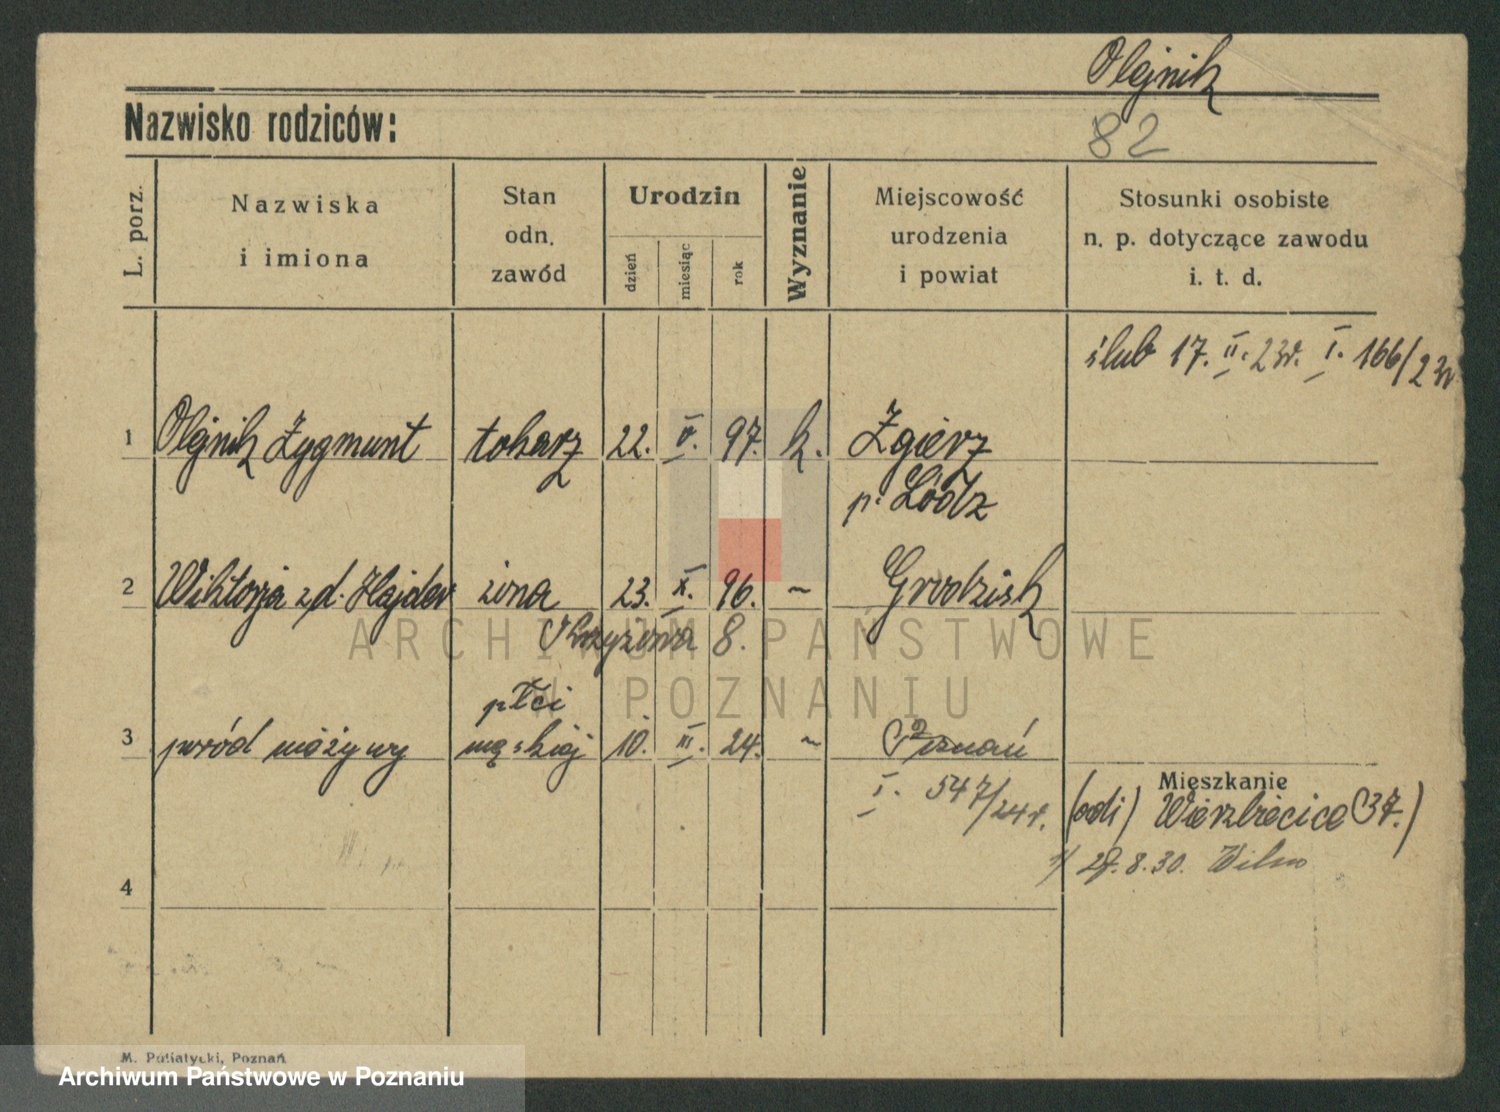 Olejnik
Nazwisko rodziców:
82
L. porz.
Nazwiska
i imiona
Stan
odn.
zawód
Urodzin
dzień
miesiąc
rok
Wyznanie
Miejscowość
urodzenia
i powiat
Stosunki osobiste
n. p. dotyczące zawodu
i. t. d.
ślub 17. II. 23r. I. 166/23r
1 Olejnik Zygmunt tokarz 22. V. 97. k. Zgierz
p. Łódź
2 Wiktorja z d. Hajder żona 23. X. 96. ~ Grodzisk
Krzyżowa 8.
płci
3 poród nieżywy męskiej 10. III. 24. ~ Poznań
I. 547/24r.
Mieszkanie
(odi) Wierzbięcice 37.)
1/ 28.8.30. Wilno
4
ARCHIWUM PAŃSTWOWE
W POZNANIU
M. Putiatycki, Poznań
Archiwum Państwowe w Poznaniu